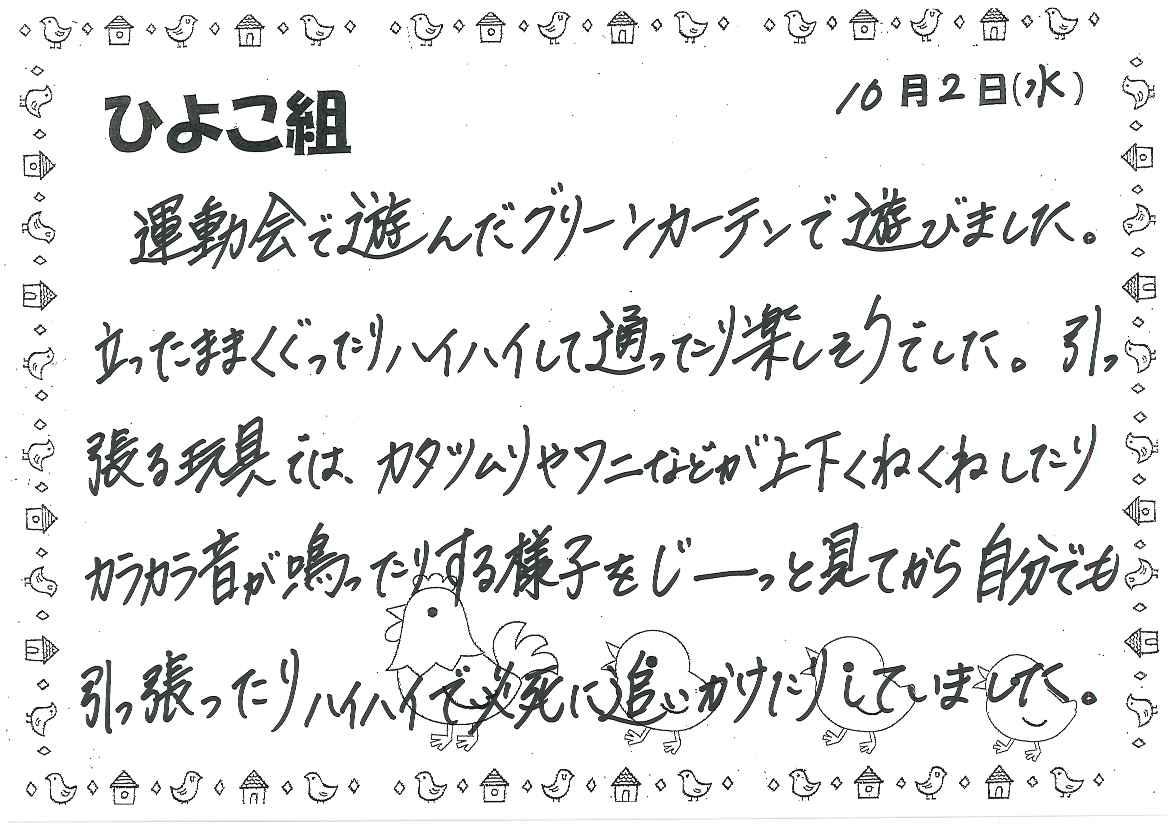 10月2日(水)
ひよこ組
運動会で遊んだグリーンカーテンで遊びました。
立ったままくぐったりハイハイして通ったり楽しそうでした。引っ
張る玩具では、カタツムリやワニなどが上下くねくねしたり
カラカラ音が鳴ったりする様子をじーっと見てから自分でも
引っ張ったりハイハイで必死に追いかけたりしていました。